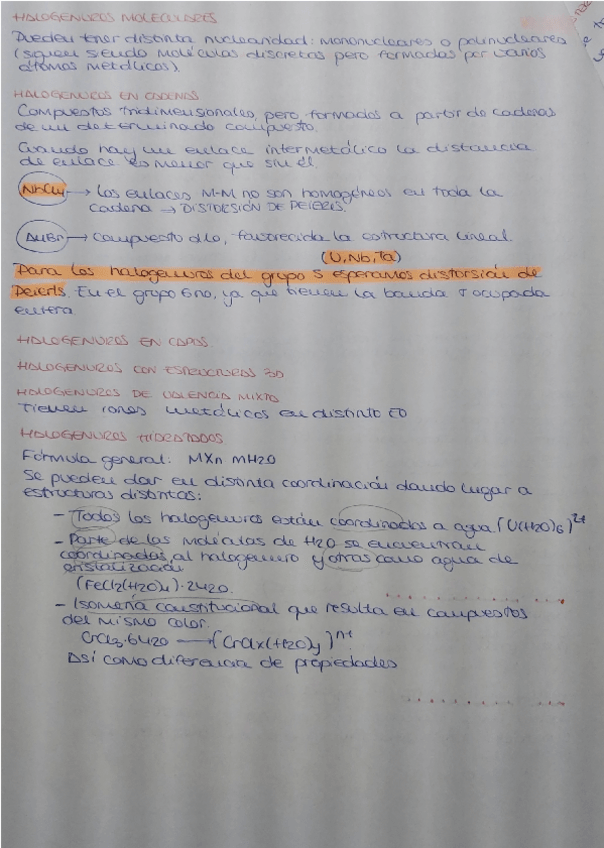 HALOGENUROS MOLECULARES
Pueden tener distinta nuclearidad: mononucleares o polinucleares
(siguen siendo moléculas discretas pero formadas por varios
átomos metálicos).
HALOGENUROS EN CADENAS
Compuestos tridimensionales, pero formados a partir de cadenas
de un determinado compuesto.
Cuando hay un enlace intermetálico la distancia
de enlace es menor que sin él.
→ los enlaces M-M no son homogéneos en toda la
cadena → DISTORSIÓN DE PEIERLS.
AuBr → compuesto d10, favorecida la estructura lineal.
(V, Nb, Ta)
Para los halogenuros del grupo 5 esperamos distorsión de
Peierls. En el grupo 6 no, ya que tienen la banda σ ocupada
entera
HALOGENUROS EN CAPAS
HALOGENUROS CON ESTRUCTURAS 3D
HALOGENUROS DE VALENCIA MIXTO
Tienen iones metálicos en distinto EO
HALOGENUROS HIDRATADOS
Fórmula general: MXn mH2O
Se pueden dar en distinta coordinación dando lugar a
estructuras distintas:
- Todos los halogenuros están coordinados a agua [V(H2O)6]2+
- Parte de las moléculas de H2O se encuentran
coordinadas al halogenuro y otras como agua de
cristalización
(FeCl2(H2O)4)·2H2O.
- Isomería constitucional que resulta en compuestos
del mismo color.
CrCl3·6H2O → [CrClx(H2O)y]n+
Así como diferencia de propiedades